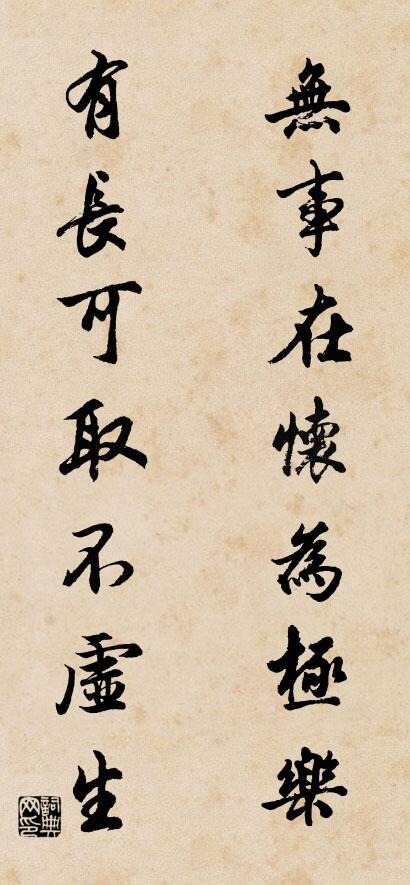 無事在懷為極樂
有長可取不虛生
詞典網印